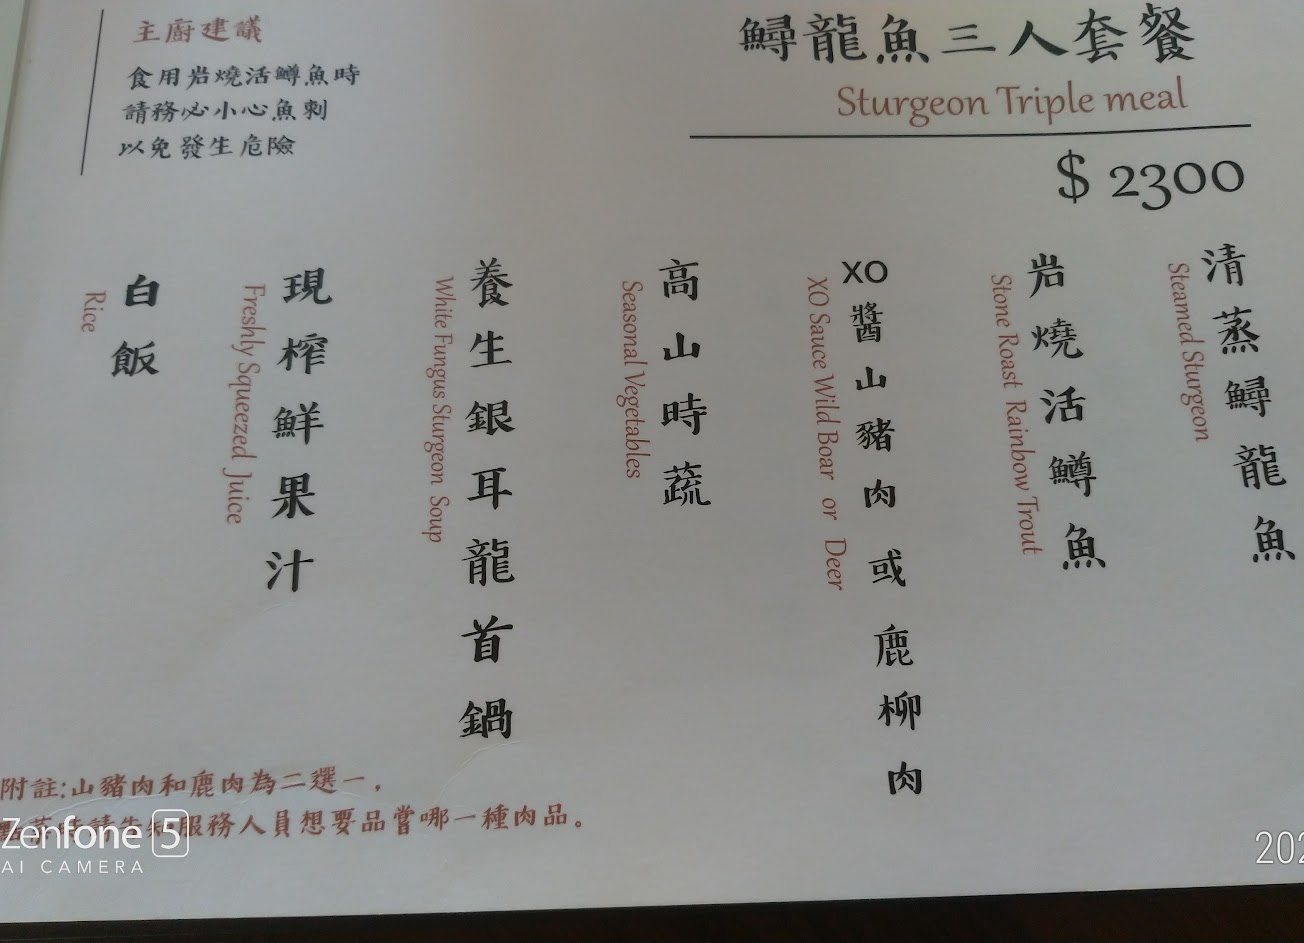 鱘龍魚三人套餐
Sturgeon Triple meal
$ 2300
主廚建議
食用岩燒活鱒魚時
請務必小心魚刺
以免發生危險
清蒸鱘龍魚
Steamed Sturgeon
岩燒活鱒魚
Stone Roast Rainbow Trout
XO醬山豬肉或鹿柳肉
XO Sauce Wild Boar or Deer
高山時蔬
Seasonal Vegetables
養生銀耳龍首鍋
White Fungus Sturgeon Soup
現榨鮮果汁
Freshly Squeezed Juice
白飯
Rice
附註:山豬肉和鹿肉為二選一，
請告知服務人員想要品嘗哪一種肉品。
Zenfone 5
AI CAMERA
202